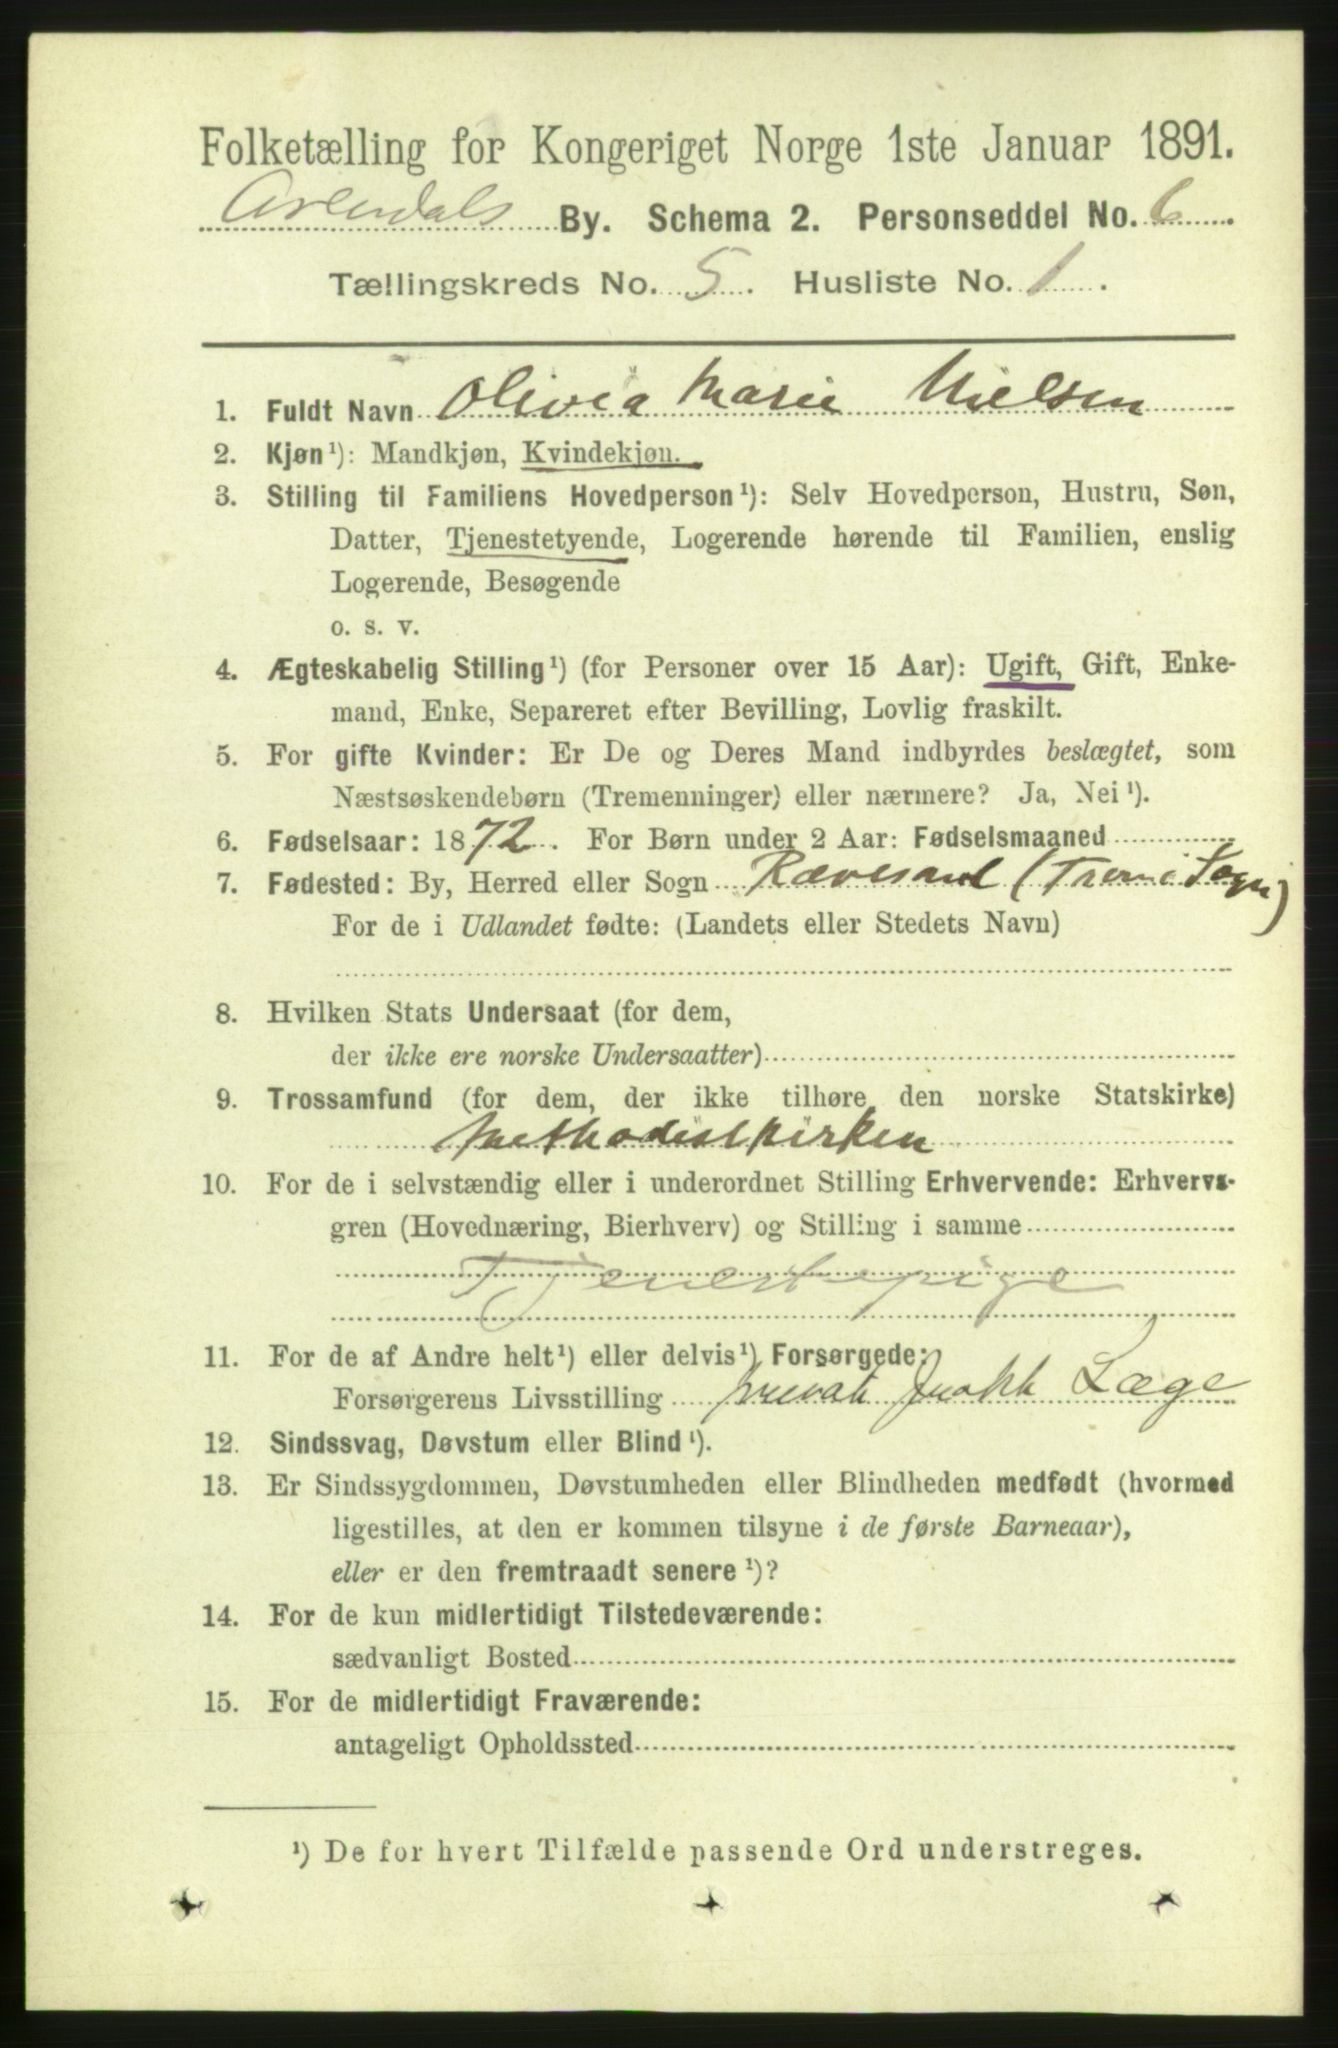 Folketælling for Kongeriget Norge 1ste Januar 1891.
Arendals By. Schema 2. Personseddel No. 6.
Tællingskreds No. 5. Husliste No. 1.
1. Fuldt Navn Olivia Marie Nielsen
2. Kjøn¹): Mandkjøn, Kvindekjøn.
3. Stilling til Familiens Hovedperson¹): Selv Hovedperson, Hustru, Søn,
Datter, Tjenestetyende, Logerende hørende til Familien, enslig
Logerende, Besøgende
o. s. v.
4. Ægteskabelig Stilling¹) (for Personer over 15 Aar): Ugift, Gift, Enke-
mand, Enke, Separeret efter Bevilling, Lovlig fraskilt.
5. For gifte Kvinder: Er De og Deres Mand indbyrdes beslægtet, som
Næstsøskendebørn (Tremenninger) eller nærmere? Ja, Nei¹).
6. Fødselsaar: 1872. For Børn under 2 Aar: Fødselsmaaned
7. Fødested: By, Herred eller Sogn Rævesand (Tromø Sogn)
For de i Udlandet fødte: (Landets eller Stedets Navn)
8. Hvilken Stats Undersaat (for dem,
der ikke ere norske Undersaatter)
9. Trossamfund (for dem, der ikke tilhøre den norske Statskirke)
Methodistkirken
10. For de i selvstændig eller i underordnet Stilling Erhvervende: Erhvervs-
gren (Hovednæring, Bierhverv) og Stilling i samme
Tjenestepige
11. For de af Andre helt¹) eller delvis¹) Forsørgede:
Forsørgerens Livsstilling privat prakt Læge
12. Sindssvag, Døvstum eller Blind¹).
13. Er Sindssygdommen, Døvstumheden eller Blindheden medfødt (hvormed
ligestilles, at den er kommen tilsyne i de første Barneaar),
eller er den fremtraadt senere¹)?
14. For de kun midlertidigt Tilstedeværende:
sædvanligt Bosted
15. For de midlertidigt Fraværende:
antageligt Opholdssted
¹) De for hvert Tilfælde passende Ord understreges.